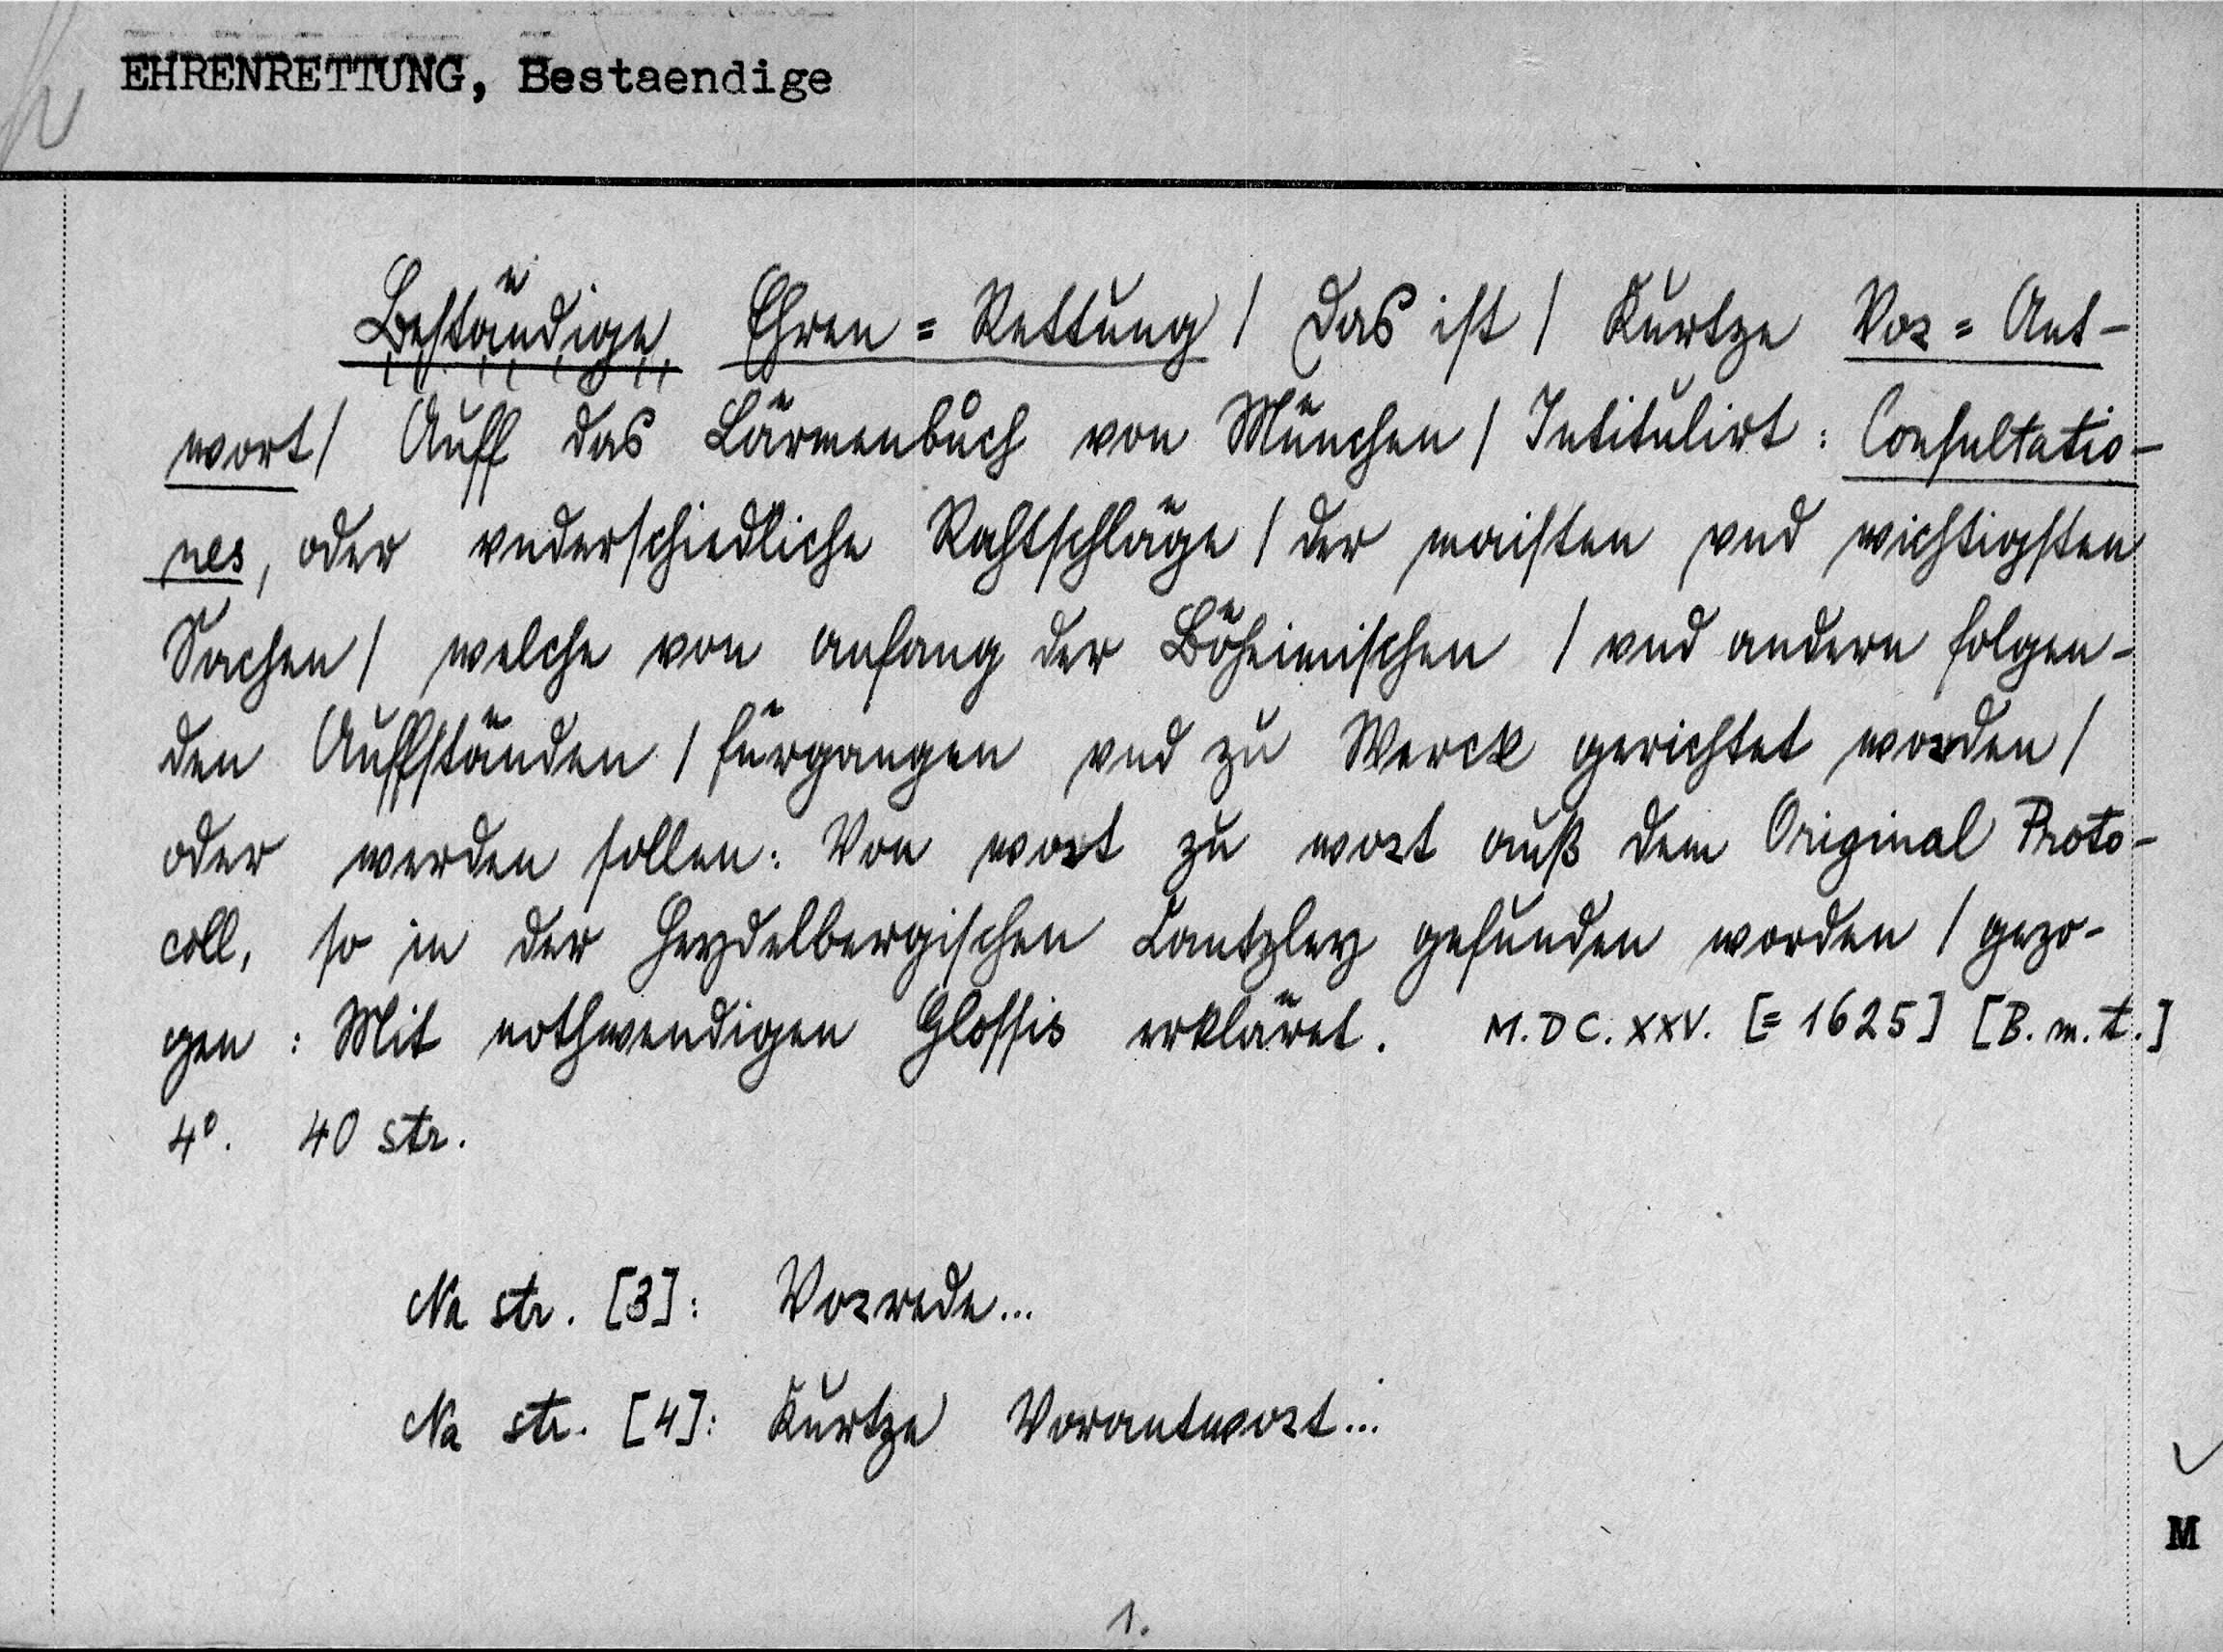 EHRENRETTUNG, Bestaendige
Beständige Ehren = Rettung / Das ist / Kurtze Vor = Ant-
wort / Auff das Lärmenbuch von München / Intitulirt : Consultatio-
nes, oder vnderschiedliche Rahtschläge / der maisten vnd wichtigsten
Sachen / welche von anfang der Böheimischen / vnd andern folgen-
den Auffständen / fürgangen vnd zu Werck gerichtet worden /
oder werden sollen : Von wort zu wort auß dem Original Proto-
coll, so in der Heydelbergischen Cantzley gefunden worden / gezo-
gen : Mit nothwendigen Glossis erkläret. M.DC.XXV. [= 1625] [B.m.t.]
4°. 40 str.
Na str. [3]: Vorrede...
Na str. [4]: Kurtze Vorantwort...
M
1.